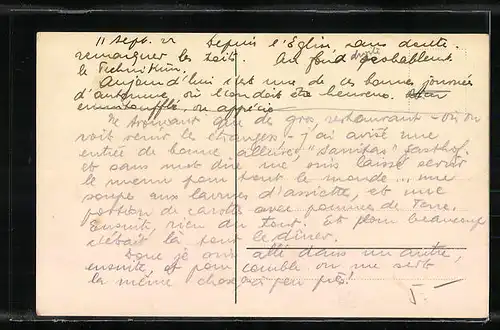 11 Sept. 22 Depuis l'Église, sans doute.
remarquer les toits. Au fond à droite probablement
le Technikum.
Aujourd'hui c'est une de ces bonnes journées
d'automne, où l'on doit être heureux.
emmitouflé, on apprécie
Ne trouvant que des gros restaurant - où on
voit venir les étrangers - j'ai avisé une
entrée de bonne allure, Gasthof,
et sans mot dire me suis laissé servir
le menu pour tout le monde... une
soupe aux d'assiette, et une
portion de carotte avec pommes de Terre.
Ensuite, rien du tout. Et plum beaucoup
c'était là tout le dîner.
Donc je suis allé dans un autre,
ensuite, et pour comble on me sert
la même chose à peu près!
5.-